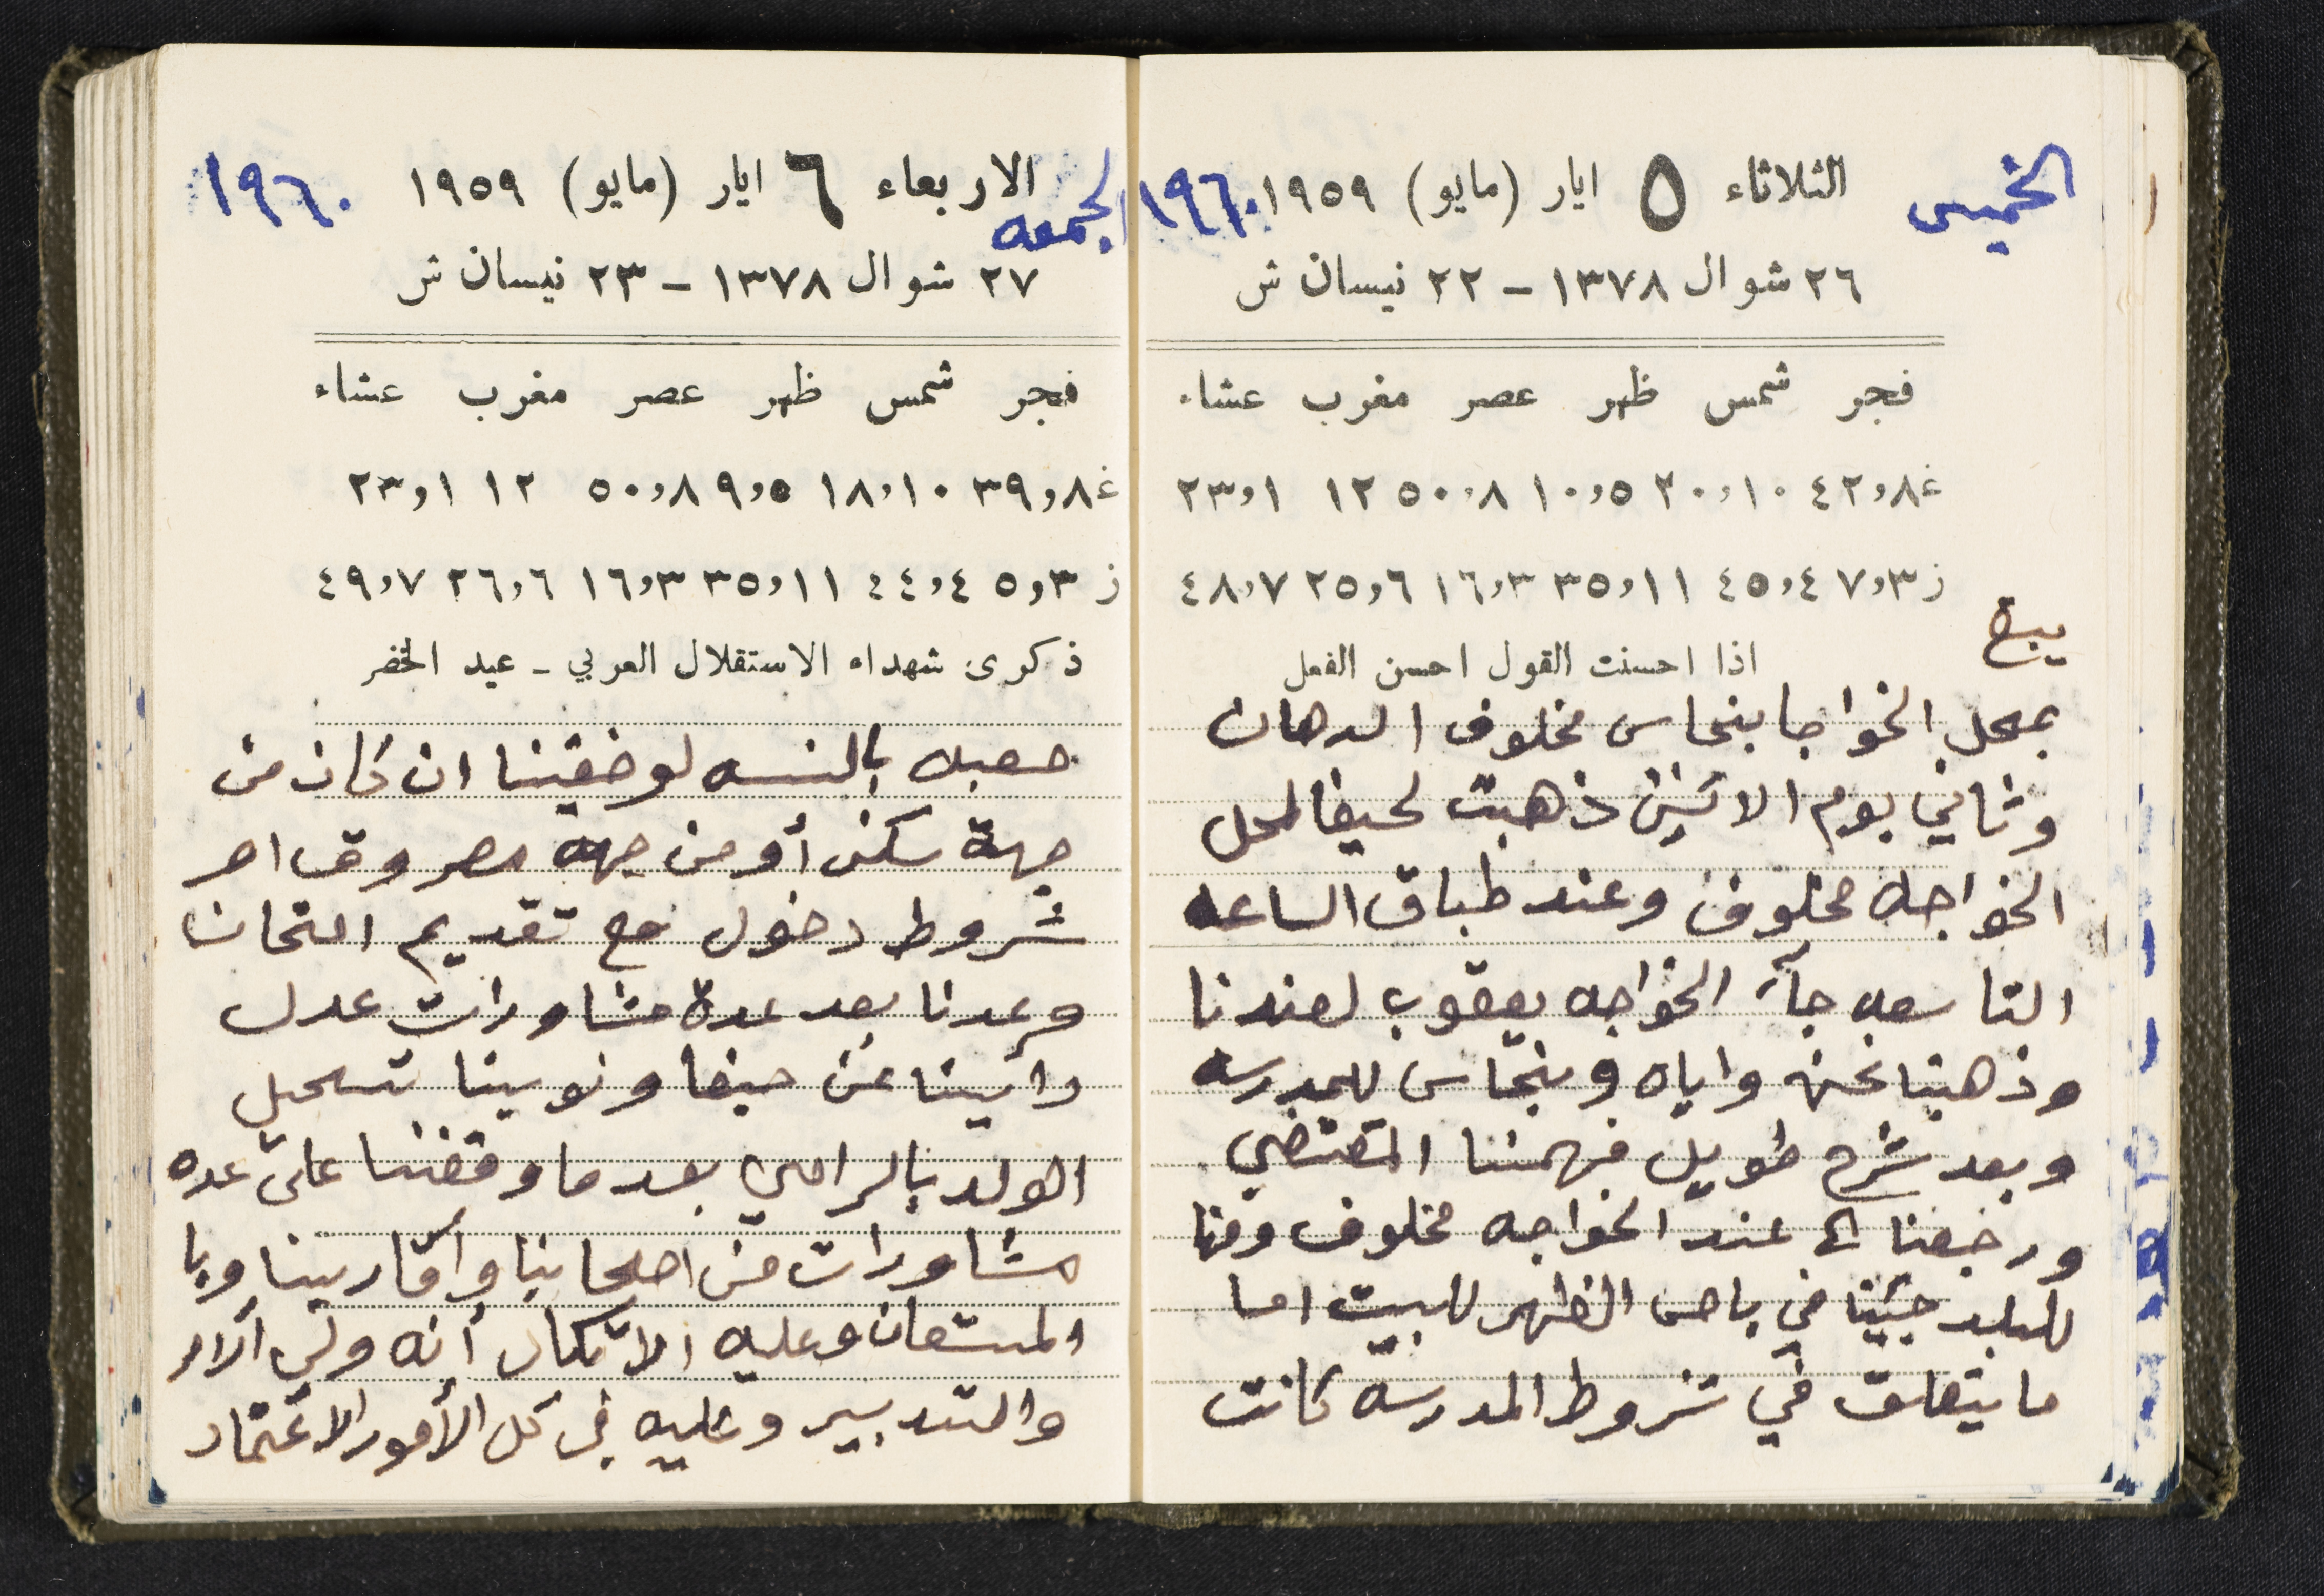 الخميس الثلاثاء ٥ ايار (مايو) ١٩٥٩ ١٩٦٠
٢٦ شوال ١٣٧٨ – ٢٢ نيسان ش
فجر شمس ظهر عصر مغرب عشاء
غ ٤٢,٨ ٢٠,١٠ ١٠,٥ ٥٠,٨ ١٢ ٢٣,١
ز ٧,٣ ٤٥,٤ ٣٥,١١ ١٦,٣ ٢٥,٦ ٤٨,٧
اذا احسنت القول احسن الفعل
يبع
بمحل الخواجا بنحاس مخلوف الدهان
وثاني يوم الاثنين ذهبت لحيفا لمحل
الخواجه مخلوف وعند طباق الساعه
التاسعه جآء الخواجه يعقوب لعندنا
وذهبنا نحن واياه وبنحاس للمدرسه
وبعد شرح طويل فهمنا المقتضي
ورجعنا الى عند الخواجه مخلوف ومنها
للبلد جئنا في باص الظهر للبيت اما
ما يتعلق في شروط المدرسه كانت
الجمعه الاربعاء ٦ ايار (مايو) ١٩٥٩ ١٩٦٠
٢٧ شوال ١٣٧٨ – ٢٣ نيسان ش
فجر شمس ظهر عصر مغرب عشاء
غ ٣٩,٨ ١٨,١٠ ٩,٥ ٥٠,٨ ١٢ ٢٣,١
ز ٥,٣ ٤٤,٤ ٣٥,١١ ١٦,٣ ٢٦,٦ ٤٩,٧
ذكرى شهداء الاستقلال العربي – عيد الخضر
صعبه بالنسبه لوضعيتنا ان كان من
جهة سكن أو من جهه مصروف او
شروط دخول مع تقديم امتحان
وعدنا بعد عدة مشاورات عدل
رأيينا عن حيفا ونوينا تسجيل
الولد بالرامي بعد ما وقفنا على عده
مشاورات من اصحابنا وأقاربينا وبا
المستعان وعليه الاتكال أنه ولي الار
والتدبير وعليه في كل الأمور الاعتماد